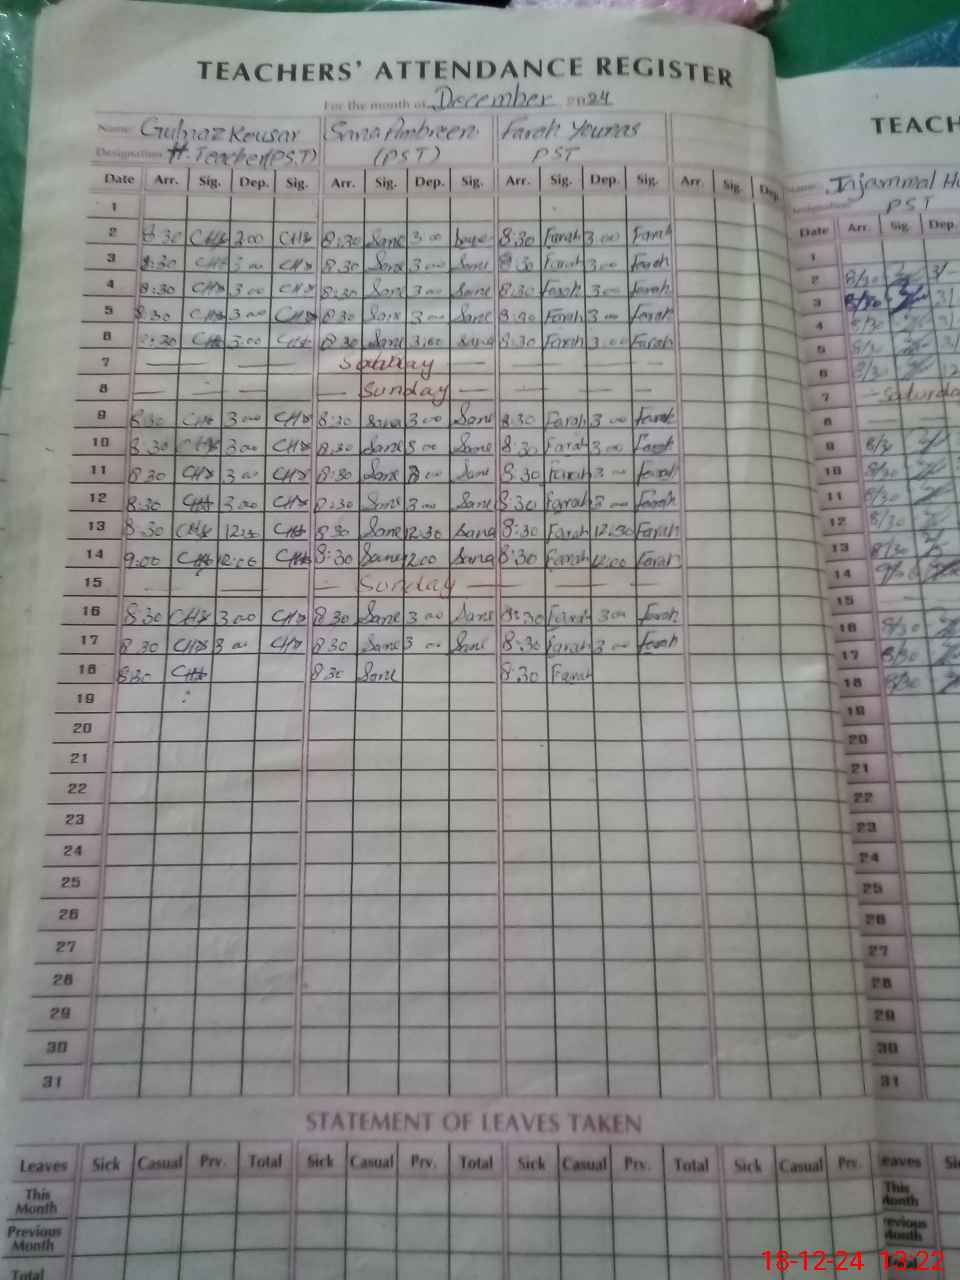 TEACHERS' ATTENDANCE REGISTER
For the month of December 2024
Name Gulnaz Kousar Sana Ambreen Farah Younas
Designation H. Teacher (PST) (PST) PST
Date Arr. Sig. Dep. Sig. Arr. Sig. Dep. Sig. Arr. Sig. Dep. Sig. Arr. Sig. Dep.
1
2 8:30 3:00 8:30 Sana 3:00 8:30 Farah 3:00 Farah
3 8:30 3:00 8:30 Sana 3:00 Sana 8:30 Farah 3:00 Farah
4 8:30 3:00 8:30 Sana 3:00 Sana 8:30 Farah 3:00 Farah
5 8:30 3:00 8:30 Sana 3:00 Sana 8:30 Farah 3:00 Farah
6 8:30 3:00 8:30 Sana 3:00 Sana 8:30 Farah 3:00 Farah
7 — — Saturday — — —
8 — — — Sunday — — — —
9 8:30 3:00 8:30 Sana 3:00 Sana 8:30 Farah 3:00 Farah
10 8:30 3:00 8:30 Sana 3:00 Sana 8:30 Farah 3:00 Farah
11 8:30 3:00 8:30 Sana 3:00 Sana 8:30 Farah 3:00 Farah
12 8:30 3:00 8:30 Sana 3:00 Sana 8:30 Farah 3:00 Farah
13 8:30 12:30 8:30 Sana 12:30 Sana 8:30 Farah 12:30 Farah
14 9:00 12:00 8:30 Sana 12:00 Sana 8:30 Farah 12:00 Farah
15 — — — Sunday — — — —
16 8:30 3:00 8:30 Sana 3:00 Sana 8:30 Farah 3:00 Farah
17 8:30 3:00 8:30 Sana 3:00 Sana 8:30 Farah 3:00 Farah
18 8:30 8:30 Sana 8:30 Farah
19
20
21
22
23
24
25
26
27
28
29
30
31
STATEMENT OF LEAVES TAKEN
Leaves Sick Casual Prv. Total Sick Casual Prv. Total Sick Casual Prv. Total Sick Casual Prv.
This
Month
Previous
Month
Total
TEACH
Name
Designation PST
Date Arr. Sig. Dep.
1
2 8/30 3/-
3 8/30
4 8/30
5
6 8/30
7 — Saturda
8
9 8/30
10 8/30
11 8/30
12 8/30
13 8/30
14
15
16 8/30
17 8/30
18 8/30
19
20
21
22
23
24
25
26
27
28
29
30
31
eaves
This
Month
evious
Month
18-12-24 13:22